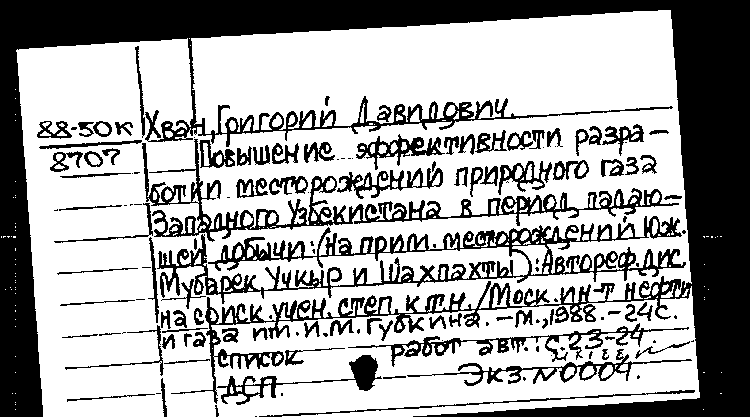 88-50К Хван, Григорий Давидович.
8707 Повышение эффективности разра-
ботки месторождений природного газа
Западного Узбекистана в период падаю-
щей добычи: (На прим. месторождений Юж.
Мубарек, Учкыр и Шахпахты): Автореф. дис.
на соиск. учен. степ. к.т.н. / Моск. ин-т нефти
и газа им. И.М. Губкина. - М., 1988. - 24с.
список работ авт.: с. 23-24.
ДСП. Экз. N0004.